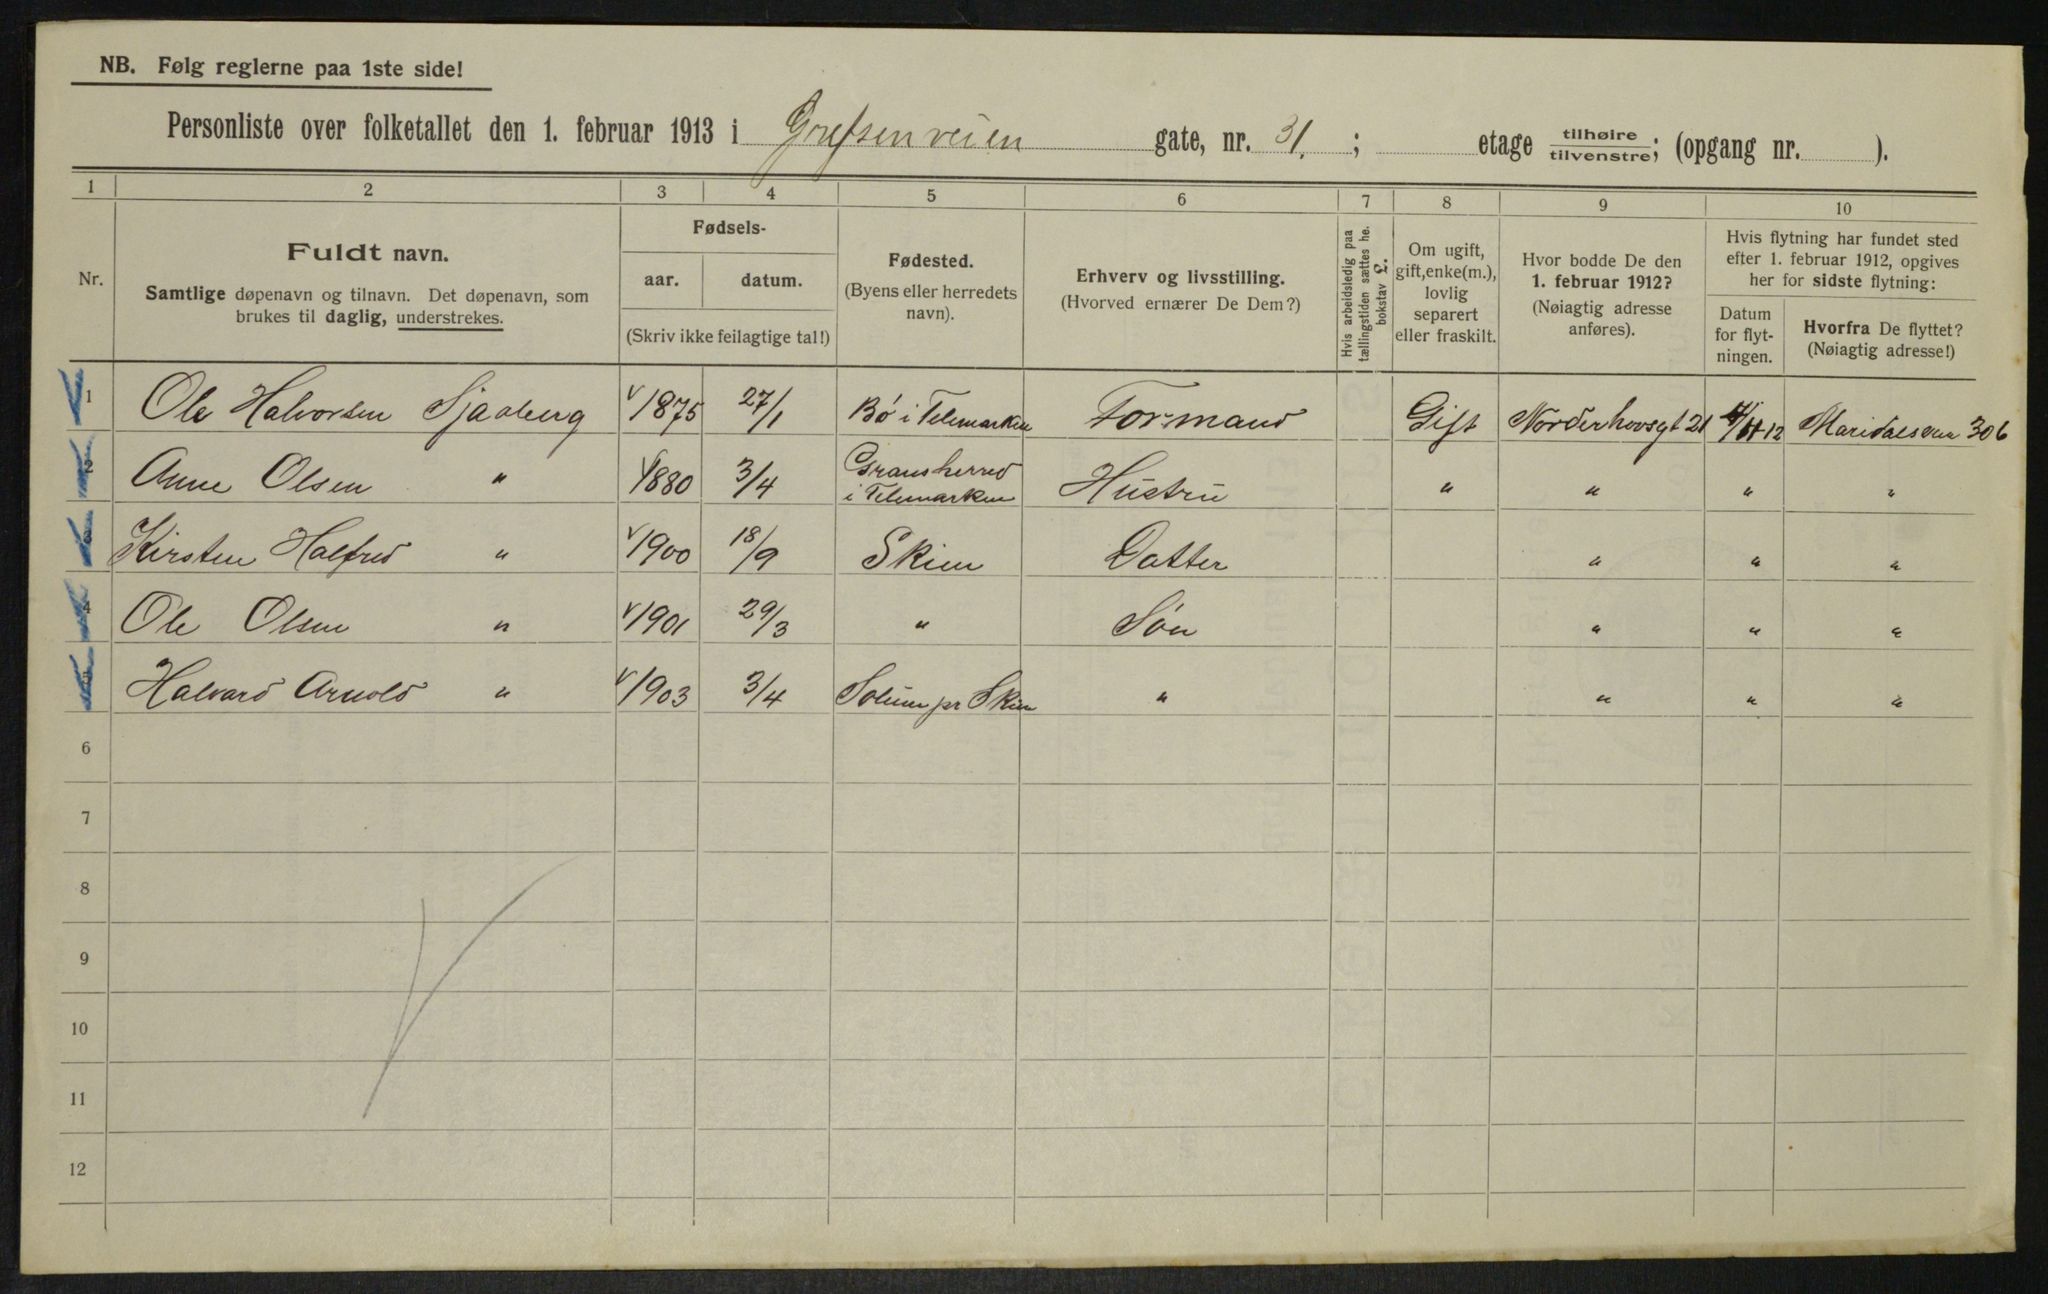 NB. Følg reglerne paa 1ste side!
Personliste over folketallet den 1. februar 1913 i Grefsenveien gate, nr. 31. ; etage tilhøire/tilvenstre; (opgang nr. ).
1 2 3 4 5 6 7 8 9 10
Nr.
Fuldt navn.
Samtlige døpenavn og tilnavn. Det døpenavn, som
brukes til daglig, understrekes.
Fødsels-
aar. datum.
(Skriv ikke feilagtige tal!)
Fødested.
(Byens eller herredets
navn).
Erhverv og livsstilling.
(Hvorved ernærer De Dem?)
Hvis arbeidsledig paa
tællingstiden sættes her
bokstav £.
Om ugift,
gift, enke(m.),
lovlig
separert
eller fraskilt.
Hvor bodde De den
1. februar 1912?
(Nøiagtig adresse
anføres).
Hvis flytning har fundet sted
efter 1. februar 1912, opgives
her for sidste flytning:
Datum
for flyt-
ningen.
Hvorfra De flyttet?
(Nøiagtig adresse!)
1 Ole Halvorsen Sjaaberg 1875 27/1 Bø i Telemarken Formand Gift Norderhovsgt 21 12 Maridalsven 306
2 Anne Olsen " 1880 3/4 Gransherred i Telemarken Hustru " " " "
3 Kirsten Halfred " 1900 18/9 Skien Datter " " "
4 Ole Olsen " 1901 29/3 " Søn " " "
5 Halvard Arnold " 1903 3/4 Solum pr Skien " " " "
6
7
8
9
10
11
12